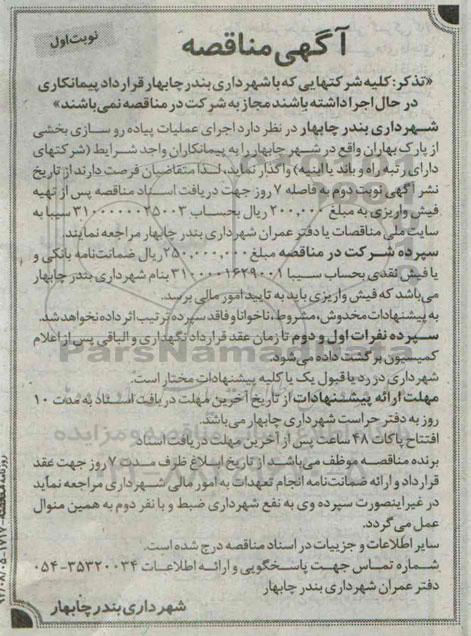 نوبت اول
آگهی مناقصه
«تذکر: کلیه شرکتهایی که با شهرداری بندر چابهار قرارداد پیمانکاری
در حال اجرا داشته باشند مجاز به شرکت در مناقصه نمی باشند»
شهرداری بندر چابهار در نظر دارد اجرای عملیات پیاده رو سازی بخشی
از پارک بهاران واقع در شهر چابهار را به پیمانکاران واجد شرایط (شرکتهای
دارای رتبه راه و باند یا ابنیه) واگذار نماید، لذا متقاضیان فرصت دارند از تاریخ
نشر آگهی نوبت دوم به فاصله ۷ روز جهت دریافت اسناد مناقصه پس از تهیه
فیش واریزی به مبلغ ۲۰۰,۰۰۰ ریال بحساب ۳۱۰۰۰۰۰۰۲۵۰۰۳ سیبا به
سایت ملی مناقصات یا دفتر عمران شهرداری بندر چابهار مراجعه نمایند.
سپرده شرکت در مناقصه مبلغ ۲۵۰,۰۰۰,۰۰۰ ریال ضمانت نامه بانکی و
یا فیش نقدی بحساب سیبا ۳۱۰۰۰۰۱۶۲۹۰۰۱ بنام شهرداری بندر چابهار
می باشد که فیش واریزی باید به تایید امور مالی برسد.
به پیشنهادات مخدوش، مشروط، ناخوانا و فاقد سپرده ترتیب اثر داده نخواهد شد.
سپرده نفرات اول و دوم تا زمان عقد قرارداد نگهداری و الباقی پس از اعلام
کمیسیون برگشت داده می شود.
شهرداری در رد یا قبول یک یا کلیه پیشنهادات مختار است.
مهلت ارائه پیشنهادات از تاریخ آخرین مهلت دریافت اسناد به مدت ۱۰
روز به دفتر حراست شهرداری چابهار می باشد.
افتتاح پاکات ۴۸ ساعت پس از آخرین مهلت دریافت اسناد
برنده مناقصه موظف می باشد از تاریخ ابلاغ ظرف مدت ۷ روز جهت عقد
قرارداد و ارائه ضمانت نامه انجام تعهدات به امور مالی شهرداری مراجعه نماید
در غیر اینصورت سپرده وی به نفع شهرداری ضبط و با نفر دوم به همین منوال
عمل می گردد.
سایر اطلاعات و جزییات در اسناد مناقصه درج شده است.
شماره تماس جهت پاسخگویی و ارائه اطلاعات ۳۵۳۲۰۰۳۴-۰۵۴
دفتر عمران شهرداری بندر چابهار
شهرداری بندر چابهار
ParsNamad